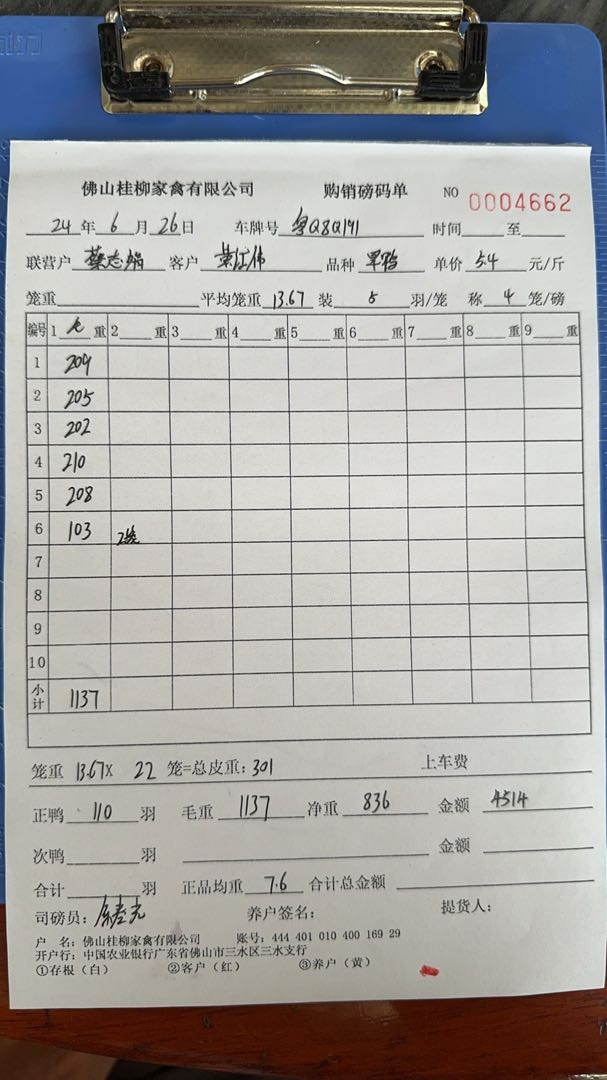 佛山桂柳家禽有限公司 购销磅码单 NO 0004662
24 年 6 月 26 日 车牌号 粤Q8Q191 时间 至
联营户 蔡志 客户 品种 单价 5.4 元/斤
笼重 平均笼重 13.67 装 5 羽/笼 称 4 笼/磅
编号 1 重 2 重 3 重 4 重 5 重 6 重 7 重 8 重 9 重
1 209
2 205
3 202
4 210
5 208
6 103 2笼
7
8
9
10
小计 1137
笼重 13.67 X 22 笼=总皮重: 301 上车费
正鸭 110 羽 毛重 1137 净重 836 金额 4514
次鸭 羽 金额
合计 羽 正品均重 7.6 合计总金额
司磅员: 养户签名: 提货人:
户 名: 佛山桂柳家禽有限公司 账号: 444 401 010 400 169 29
开户行: 中国农业银行广东省佛山市三水区三水支行
①存根（白） ②客户（红） ③养户（黄）